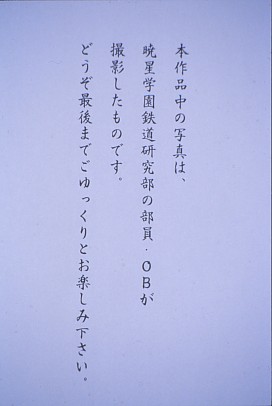 本作品中の写真は、
暁星学園鉄道研究部の部員・OBが
撮影したものです。
どうぞ最後までごゆっくりとお楽しみ下さい。